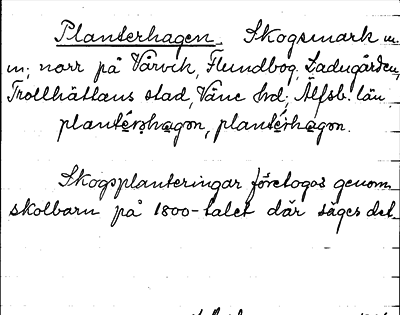 Planterhagen. Skogsmark m.
m; norr på Vårvik, Flundbog, Ladugården,
Trollhättans stad, Väne hd; Älfsb. län.
plantérshagən, plantérhagən.
Skogsplanteringar företogos genom
skolbarn på 1800-talet där säges det